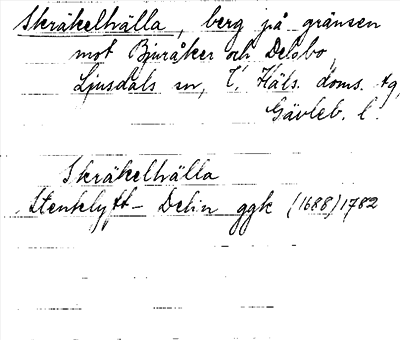 Skräkelhälla, berg på gränsen
mot Bjuråker och Delsbo,
Ljusdals sn, V. Häls. doms. tg,
Gävleb. l.
Skräkelhälla
Stenklyft - Delin ggk (1688) 1782